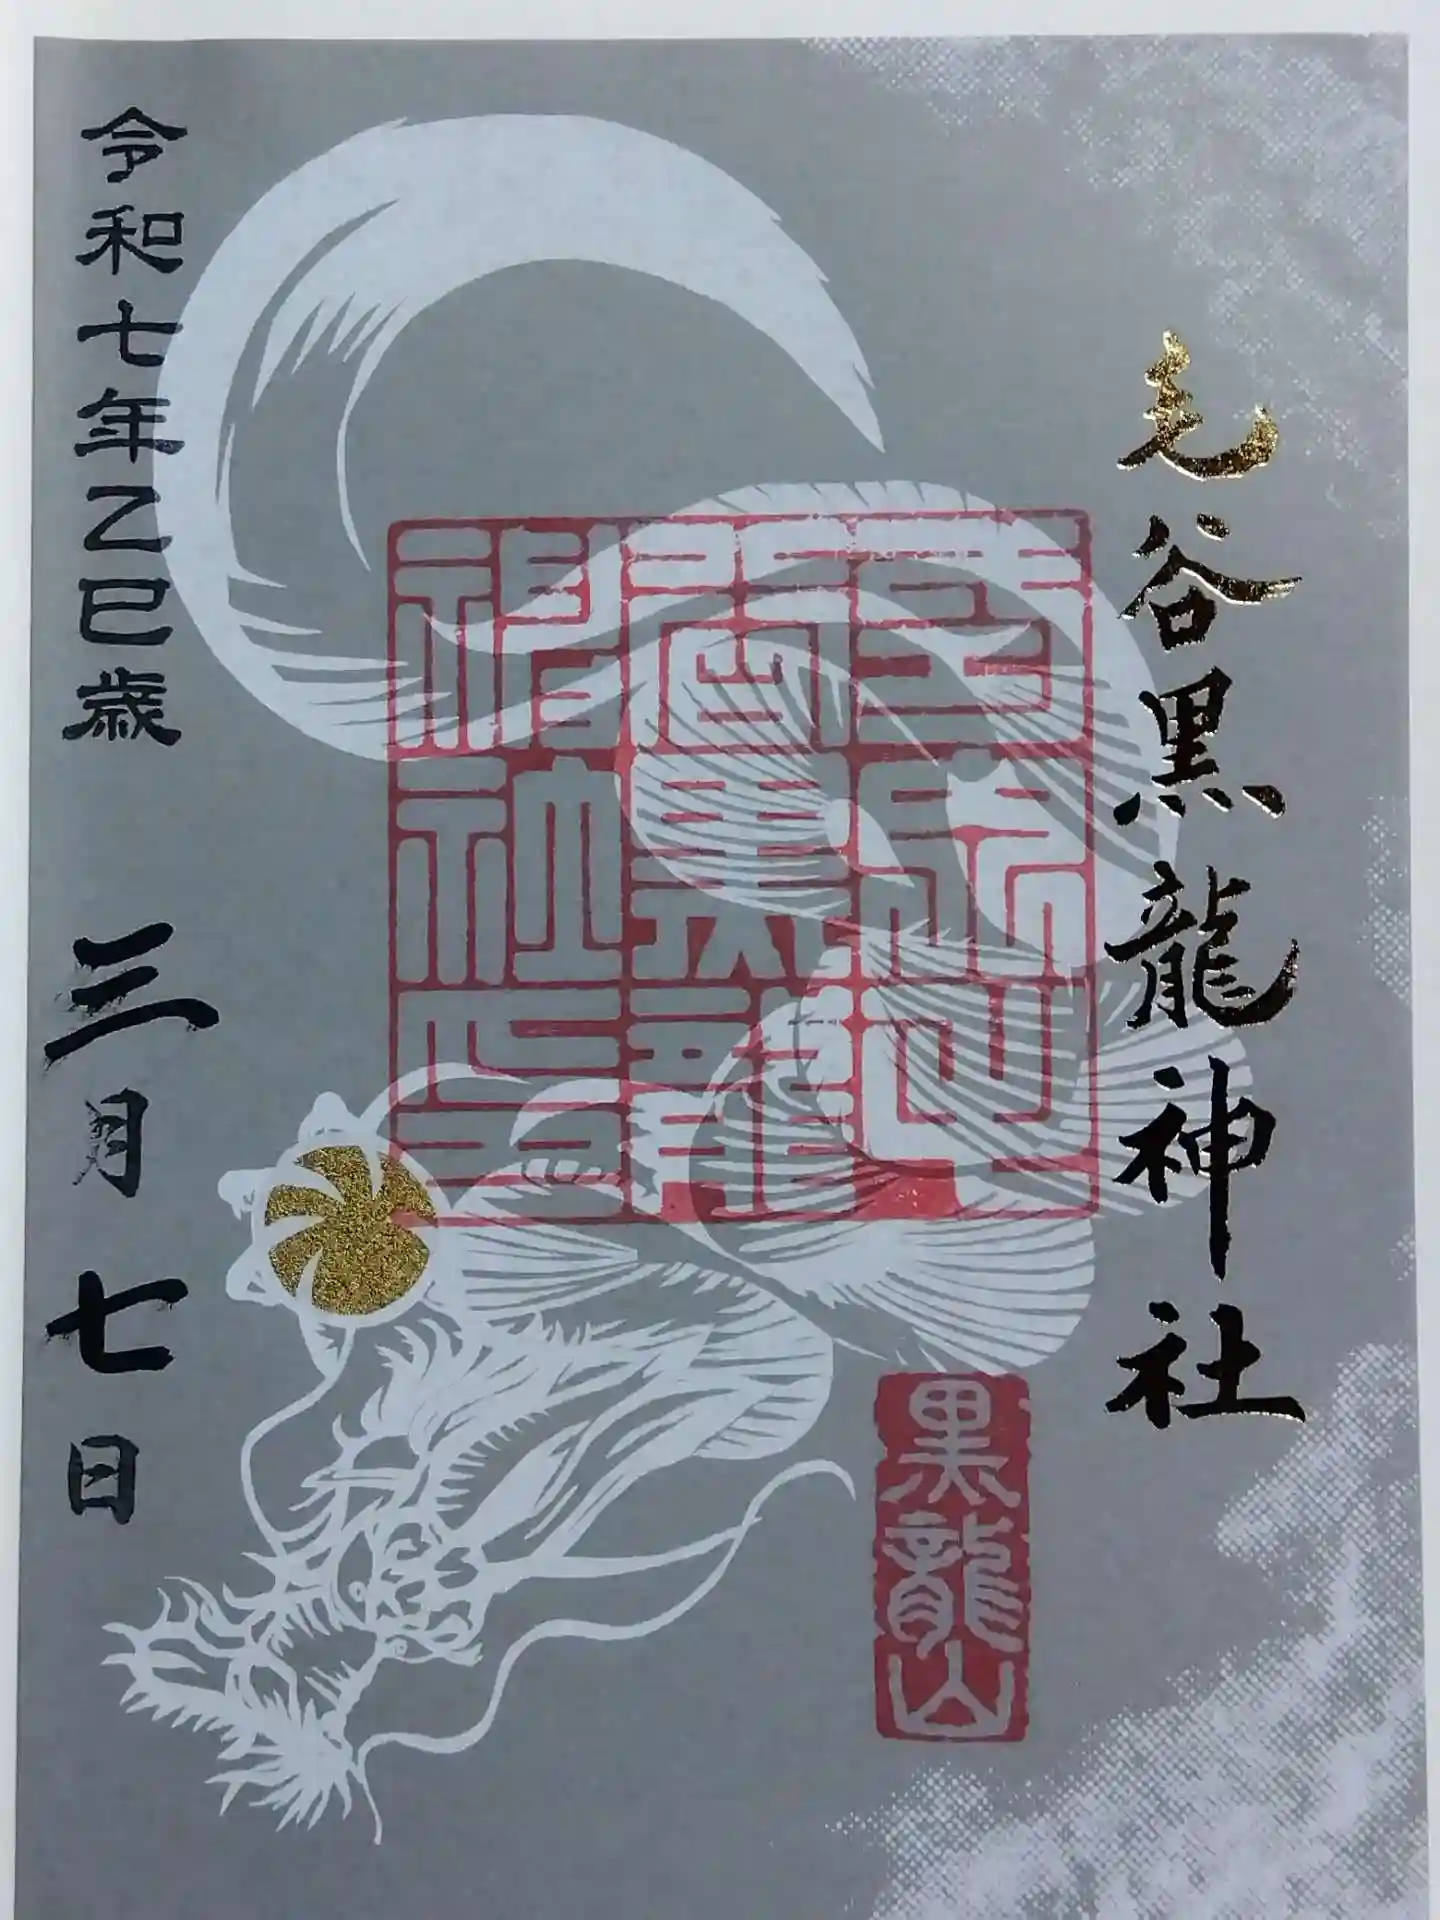 毛谷黒龍神社
黒龍山
令和七年乙巳歳 三月七日